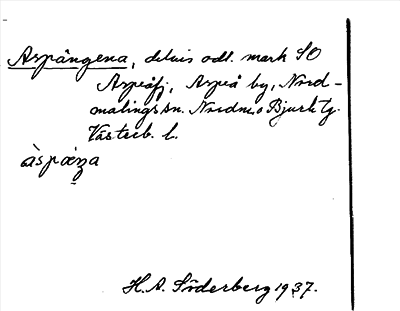 Aspängena, delvis odl. mark SO
Aspeåfj, Aspeå by, Nord-
malings sn. Nordm. o Bjurh tg.
Västerb. l.
àspǽŋa
H. A. Söderberg 1937.